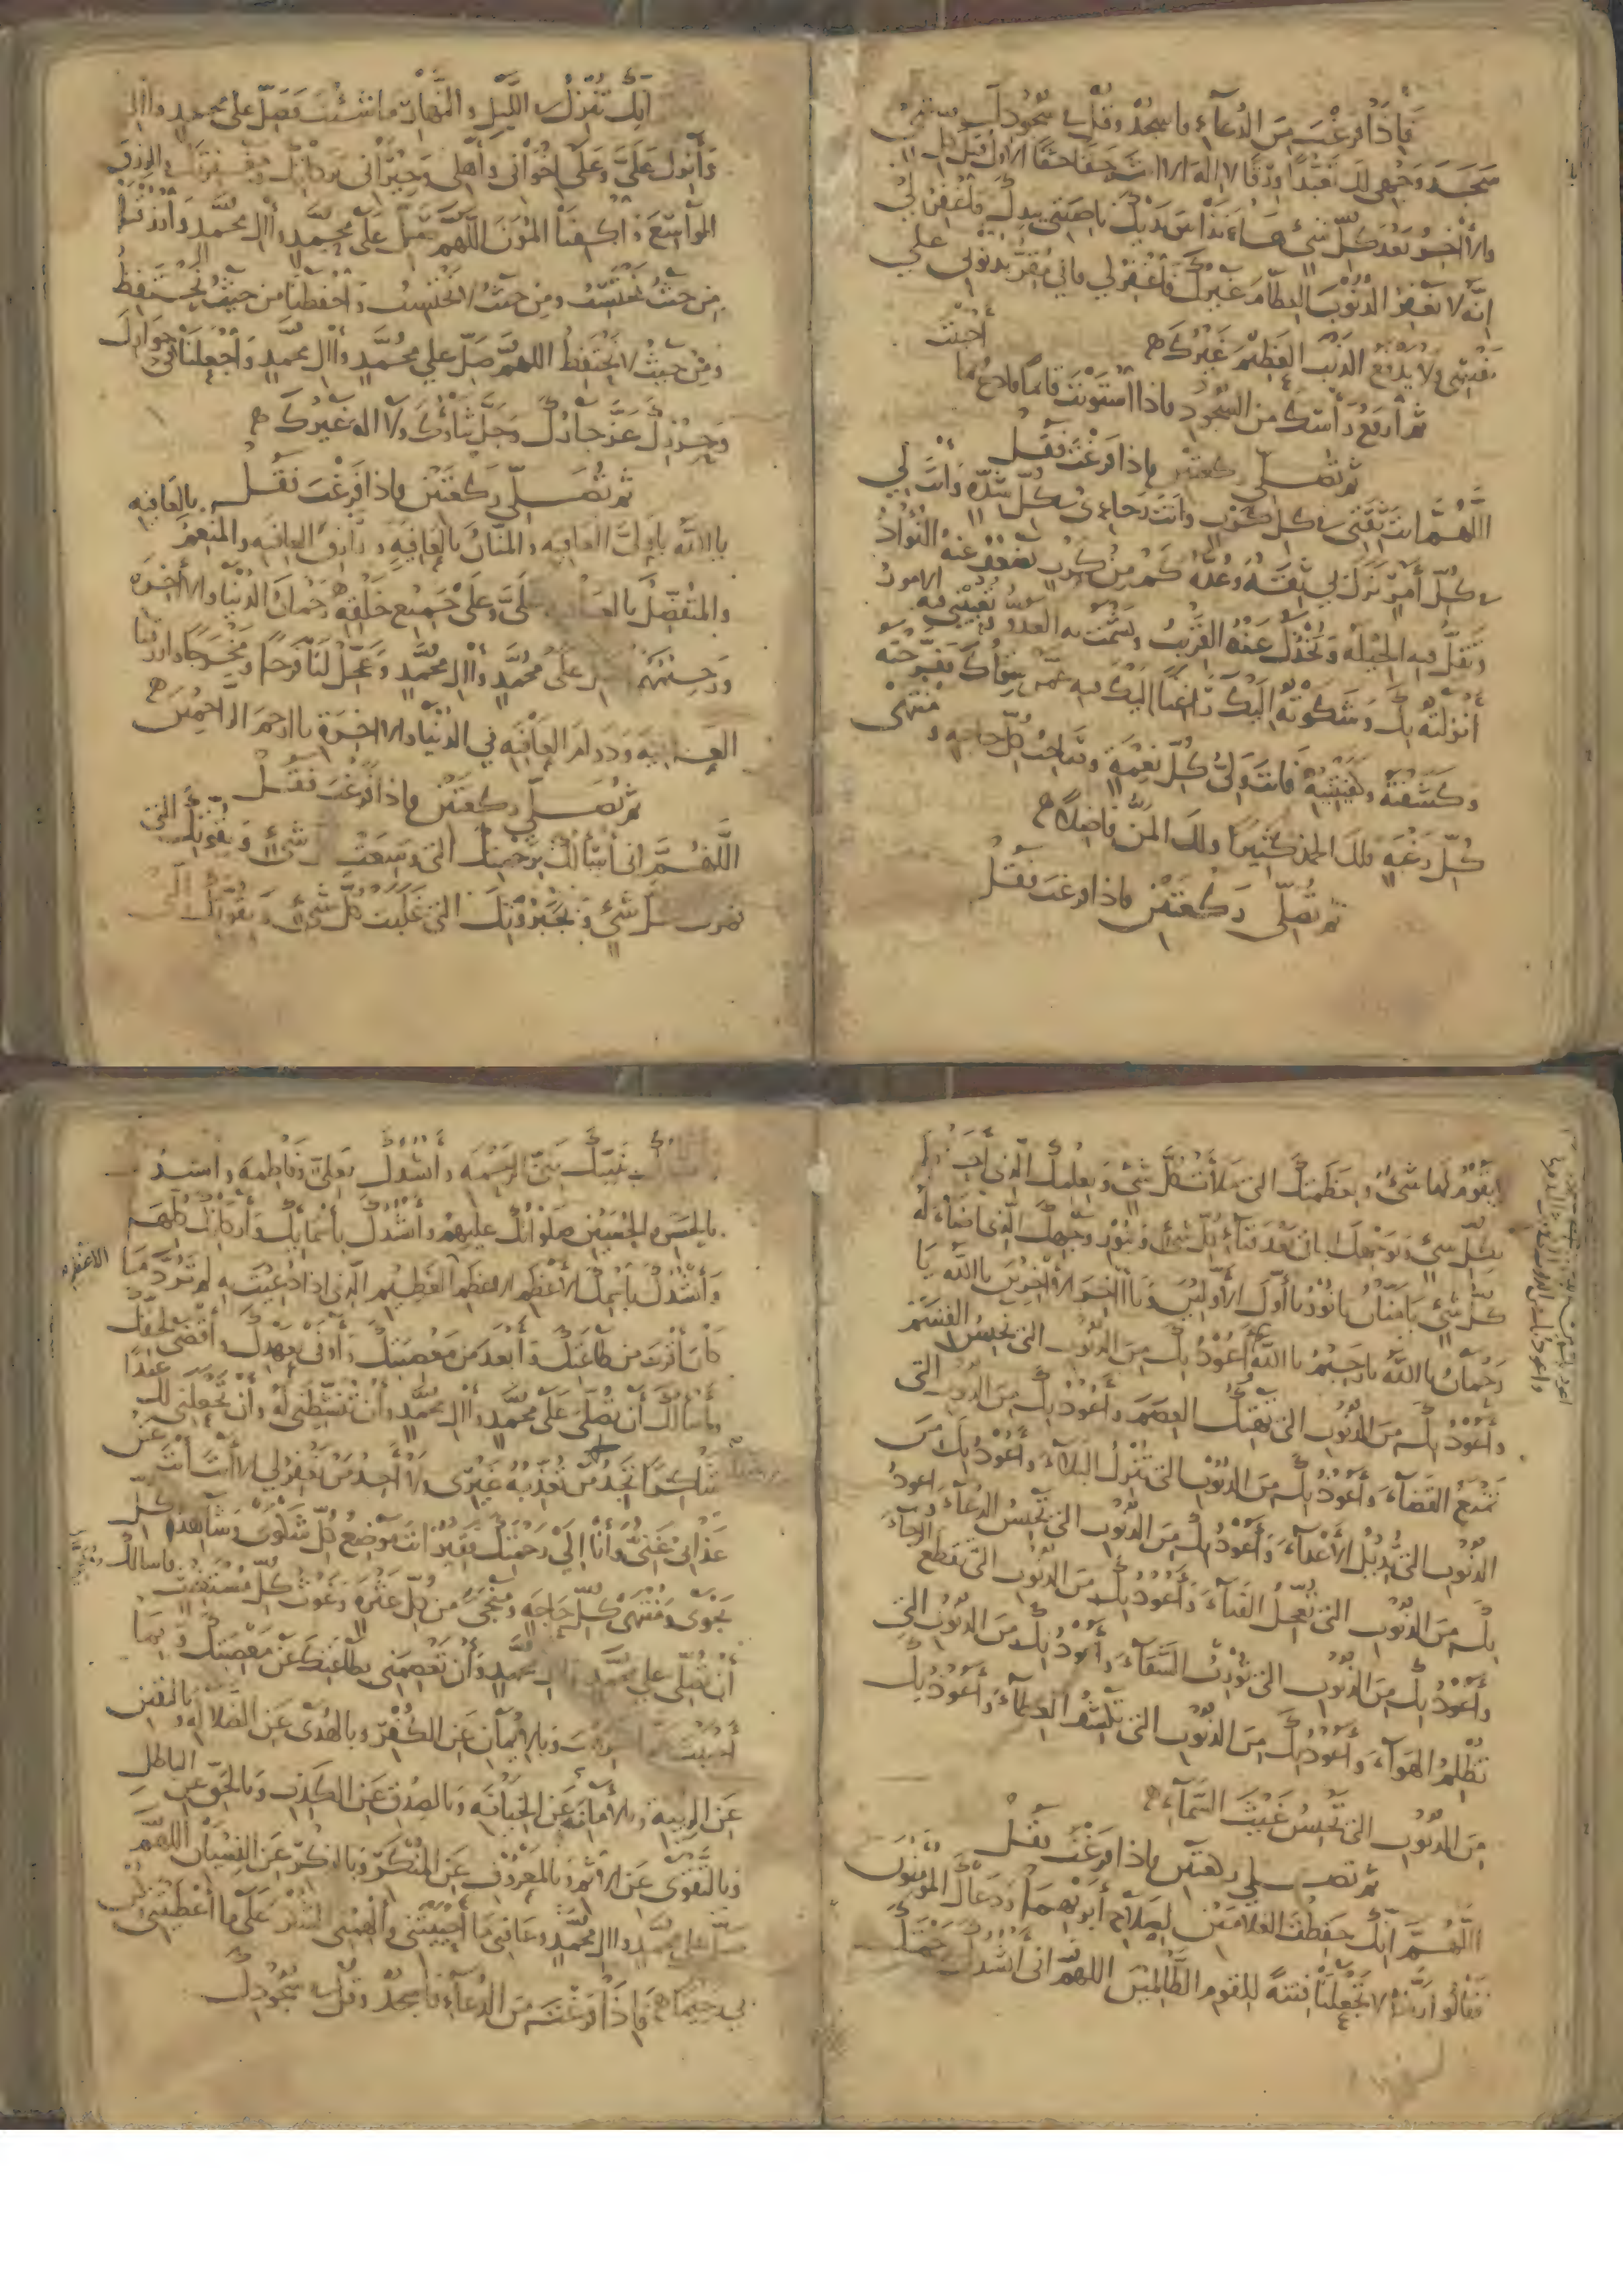 فَإِذَا فَرغْتَ مِنَ الدُعآءِ فاسجُدْ وَقُل في سُجُودِكَ
سَجَدَ وَجْهِي لك تَعَبُّداً وَرِقّاً لا اله الا انت حَقّاً حقّاً الاول قبل كل
والآخِرُ بَعْدَ كُلّ شيءٍ هَا أنَذَا بين يَدَيْكَ ناصيتي بيدك فَاغْفِرْ لي
إنّه لا يغفِرُ الذُّنُوبَ العِظامَ غَيْرُكَ فَاغْفِرْ لي فاني مُقِرٌّ بذنوبي على
نَفْسِي وَلا يَدْفَعُ الذنب العَظِيْمَ غَيْرُكَ
ثم ارفع رَأْسَكَ من السُجُودِ فاذا اسْتَوَيْتَ قائماً فادعُ بما
أحببْتَ
ثم تُصَلّي ركعتَيْن فاذا فَرَغْتَ فَقُل
اللّهُمَّ انتَ ثِقَتي في كل كَرْبٍ وانتَ رَجَاءي في كُلّ شدّةٍ وَأنتَ لي
في كُلّ أَمْرٍ نَزَلَ بي ثِقَةٌ وَعُدَّةٌ كَمْ مِنْ كَرْبٍ يَضْعُفُ عَنْهُ الفُؤَادُ
وَتَقِلُّ فيه الحِيْلَةُ وَيَخْذُلُ عَنْهُ القَرِيْبُ وَيَشْمَتُ به العدو وتُعْيِيْني فيه الامورُ
أَنْزَلْتُهُ بِكَ وَشَكَوْتُهُ إلَيْكَ رَاغِباً إليك فيه عَمَّنْ سِوَاكَ فَفَرَّجْتَهُ
وَكَشَفْتَهُ وَكَفَيْتَنِيْهُ فَانتَ وَلِيُّ كُلّ نِعْمَةٍ وصَاحِبُ كُلّ حاجةٍ وَمُنْتَهَى
كُلّ رَغْبَةٍ فلكَ الحَمْدُ كَثِيْراً ولكَ المَنُّ فَاضِلاً
ثم تُصَلّي رَكْعَتَيْنِ فاذا فرغتَ فَقُل
إنّك تُنْزِلُ في اللّيْلِ والنَّهَارِ مَا شئْتَ فَصَلّ على محمدٍ وَآلِهِ
وَأَنْزِل عَلَيَّ وَعَلَى اخْوَانِي وَأَهْلِي وَجِيْرَانِي بركَاتِكَ وَمَغْفِرَتَكَ والرزق
الوَاسِعَ وَاكْفِنَا المُؤَنَ اللّهُمّ صَلّ عَلَى مُحَمَّدٍ وَآلِ محمّدٍ وَارْزُقْنَا
مِن حَيْثُ نَحْتَسِبُ وَمِن حَيْثُ لا نَحْتَسِبُ وَاحْفَظْنَا من حَيْثُ نَحْتَفِظُ
وَمِنْ حَيْثُ لا نَحْتَفِظُ اللهمّ صَلّ على مُحَمَّدٍ وآلِ محمدٍ وَاجْعَلْنَا في جِوَارِكَ
وَحِرْزِكَ عَزَّ جَارُكَ وَجَلَّ ثَنَاؤُكَ وَلا اله غَيْرُكَ
ثم تُصَلّي رَكعَتَيْن فاذا فَرَغْتَ فَقُل
يا اللهُ يا وَلِيَّ العَافِيَةِ والمَنّانَ بالعَافِيَةِ ورَازِقَ العافِيَةِ والمُنْعِمَ بالعافيه
والمُتَفَضِّلَ بالعافية عَلَيَّ وَعَلَى جَمِيْعِ خَلْقِهِ رَحْمَانَ الدُّنْيَا والآخِرَةِ
وَرَحِيْمَهُمَا صلّ عَلَى مُحَمّدٍ وَآلِ محمّدٍ وَعَجِّلْ لَنَا فَرَجاً وَمَخْرَجاً وَارْزُقْنَا
العَافِيَةَ وَدَوَامَ العَافِيَةِ في الدُّنْيَا والآخِرَةِ يا ارحَمَ الرَّاحِمِيْنَ
ثم تُصَلّي ركعَتَيْن فاذا فَرَغْتَ فَقُلْ
اللّهُمَّ اني أَسْأَلُكَ بِرَحْمَتِكَ التي وَسِعَتْ كل شيءٍ وَبِقُوَّتِكَ التي
قهرت كل شيءٍ وَبِجَبَرُوْتِكَ التي غَلَبَتْ كُلّ شيءٍ وَبِقُوَّتِكَ التي
لا يَقُوْمُ لَهَا شيءٌ وَبِعَظَمَتِكَ التي مَلأَتْ كُلَّ شيءٍ وَبِعِلْمِكَ الّذي أحَاطَ
بكُلّ شيءٍ وَبِوَجْهِكَ البَاقي بَعْدَ فَنَآءِ كُلّ شيءٍ وَبِنُوْرِ وَجْهِكَ الّذي اضَاءَ له
كُلّ شيءٍ يَا مَنّانُ يَا نُوْرُ يَا أَوَّلَ الأَوّلِيْنَ وَيَا آخِرَ الآخِرِيْنَ يا اللهُ يَا
رَحْمَانُ يا اللهُ يا رَحِيْمُ يا اللهُ أعُوْذُ بِكَ مِنَ الذنُوب التي تَحْبِسُ القِسَمَ
وَأَعُوْذُ بِكَ مِنَ الذُّنُوب التي تَهْتِكُ العِصَمَ وَأَعُوْذُ بِكَ مِنَ الذنوب التي
تَمْنَعُ القَضَآءَ وَأَعُوْذُ بِكَ مِنَ الذنُوْبِ التي تُنْزِلُ البَلآءَ وَأَعُوْذُ بِكَ مِنَ
الذنُوْبِ التي تُدِيْلُ الأَعْدآءَ وَأَعُوْذُ بِكَ مِنَ الذنُوب التي تَحْبِسُ الدُعَآءَ وَاعوذُ
بِكَ مِنَ الذنُوْب التي تُعَجِّلُ الفَنَآءَ وَأَعُوْذُ بِكَ مِنَ الذنُوب التي تقطع الرجآءَ
وأَعُوْذُ بِكَ مِنَ الذنُوْبِ التي تُوْرِثُ الشَّقَآءَ وَأعُوْذُ بِكَ مِنَ الذنُوبِ التِي
تُظْلِمُ الهَوَآءَ وَأَعُوْذُ بِكَ مِنَ الذنُوب التي تَكْشِفُ الغِطآءَ وَأَعُوْذُ بِكَ
مِنَ الذنُوْبِ التي تَحْبِسُ غَيْثَ السَّمَآءِ
ثم تصلي ركعتين فاذا فَرَغْتَ فَقُل
اللّهُمَّ إنّكَ حَفِظْتَ الغُلامَيْنِ لِصَلاحِ أَبَوَيْهِمَا وَدَعَاكَ المُؤْمِنُوْنَ
فَقَالُوا رَبَّنَا لا تَجْعَلْنَا فِتْنَةً لِلْقَومِ الظَّالِمِيْنَ اللهمّ اني أنْشُدُكَ برَحْمَتِكَ
بِنَبِيِّكَ نَبِيّ الرَّحْمَةِ وَأَنْشُدُكَ بِعَلِيٍّ وَفَاطِمَةَ وَأَنشُدُكَ
بالحَسَنِ والحُسَيْنِ صَلَوَاتُكَ عَلَيْهِمْ وَأَنْشُدُكَ بأَسْمَائِكَ وَأَرْكَانِكَ كُلّهَا
وَأَنْشُدُكَ باسْمِكَ الأَعْظَمِ الأعظَمِ العَظِيمِ الّذي اذا دُعِيْتَ بِهِ لَمْ تَرُدَّ مَا
كانَ أَقْرَبَ من طَاعَتِكَ وَأَبْعَدَ مِن مَعْصِيَتِكَ وَأَوْفَى بِعَهْدِكَ وأَقْضَى لِحَقِّكَ
فأَسْأَلُكَ أَن تُصَلِّيَ عَلَى مُحَمّدٍ وَآلِ محمّدٍ وَأَنْ تُنَشِّطَني لَهُ وَأَنْ تَجْعَلَنِي لَكَ عبْدًا
شَاكِراً تَجِدُ مَنْ تُعَذِّبُهُ غَيْرِي وَلا أَجِدُ مَنْ يَغْفِرُ لِي إلاّ أَنتَ أَنْتَ عَنْ
عَذَابي غَنِيٌّ وَأَنَا إلَى رَحْمَتِكَ فَقِيْرٌ انتَ مَوْضِعُ كُلّ شَكْوَى وَشَاهِدُ كُلّ
نَجْوَى وَمُنْتَهَى كُلّ حَاجَةٍ وَمُنْجي مِن كُلّ عَثْرَةٍ وَغَوْثُ كلّ مُسْتَغِيْثٍ فاسالك
أَنْ تُصَلّي على محمّدٍ وآلِ محمدٍ وَأَنْ تَعْصِمَنِي بِطَاعَتِكَ عَنْ مَعْصِيَتِكَ وَبِمَا
أَحْبَبْتَ عما كرهت وَبِالاِيْمَانِ عَنِ الكُفْرِ وبالهُدَى عَنِ الضَّلالَةِ وَباليَقِيْنِ
عَنِ الرِيبَةِ وَبالأَمَانَةِ عَنِ الخِيَانَةِ وَبالصِدْقِ عَنِ الكَذِبِ وَبالحَقّ عن الباطل
وَبالتّقْوَى عَنِ الاثم وبالمَعْرُوْفِ عَنِ المُنْكَرِ وبالذِكْرِ عَنِ النِسْيَانِ اللهُمّ
صَلّ على محمدٍ وآلِ محمّدٍ وعَافِني مَا أَحْيَيْتَنِي وأَلْهِمْنِي الشُكْرَ عَلَى ما أَعْطَيْتَنِي وكن
بي رحيمًا فَإِذَا فَرَغْتَ مِنَ الدُعآءِ فاسجُدْ وَقُل في سُجُودِكَ